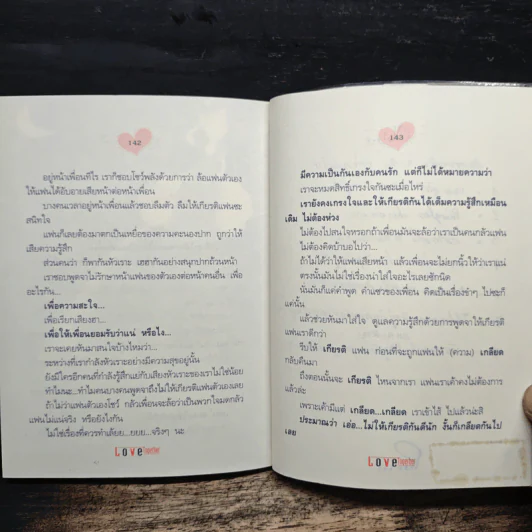 142
อยู่หน้าเพื่อนทีไร เราก็ชอบโชว์พลังด้วยการว่า ล้อแฟนตัวเอง
ให้แฟนได้อับอายเสียหน้าต่อหน้าเพื่อน
บางคนเวลาอยู่หน้าเพื่อนแล้วชอบลืมตัว ลืมให้เกียรติแฟนซะ
สนิทใจ
แฟนก็เลยต้องมาตกเป็นเหยื่อของความคะนองปาก ถูกว่าให้
เสียความรู้สึก
ส่วนคนว่า ก็พากันหัวเราะ เฮฮากันอย่างสนุกปากถ้วนหน้า
เราชอบพูดจาไม่รักษาหน้าแฟนของตัวเองต่อหน้าคนอื่น เพื่อ
อะไรกัน...
เพื่อความสะใจ...
เพื่อเรียกเสียงฮา...
เพื่อให้เพื่อนยอมรับว่าแน่ หรือไง...
เราจะเคยหันมาสนใจบ้างไหมว่า...
ระหว่างที่เรากำลังหัวเราะอย่างมีความสุขอยู่นั้น
ยังมีใครอีกคนที่กำลังรู้สึกแย่กับเสียงหัวเราะของเราไม่ใช่น้อย
ทำไมนะ...ทำไมคนบางคนพูดจาถึงไม่ให้เกียรติแฟนตัวเองเลย
ถ้าไม่ว่าแฟนตัวเองโชว์ กลัวเพื่อนจะล้อว่าเป็นพวกใจมดกลัว
แฟนไม่แน่จริง หรือยังไงกัน
ไม่ใช่เรื่องที่ควรทำเล้ยย...ยยย...จริงๆ นะ
Love
143
มีความเป็นกันเองกับคนรัก แต่ก็ไม่ได้หมายความว่า
เราจะหมดสิทธิ์เกรงใจกันซะเมื่อไหร่
เรายังคงเกรงใจและให้เกียรติกันได้เต็มความรู้สึกเหมือน
เดิม ไม่ต้องห่วง
ไม่ต้องไปสนใจหรอกถ้าเพื่อนมันจะล้อว่าเราเป็นคนกลัวแฟน
ไม่ต้องคิดบ้าบอไปว่า...
ถ้าไม่ได้ว่าให้แฟนเสียหน้า แล้วเพื่อนจะไม่ยกนิ้วให้ว่าเราแน่
ตรงนั้นมันไม่ใช่เรื่องน่าใส่ใจอะไรเลยซักนิด
นั่นมันก็แค่คำพูด คำแซวของเพื่อน คิดเป็นเรื่องขำๆ ไปซะก็
แค่นั้น
แล้วช่วยหันมาใส่ใจ ดูแลความรู้สึกด้วยการพูดจาให้เกียรติ
แฟนเราดีกว่า
รีบให้ เกียรติ แฟน ก่อนที่จะถูกแฟนให้ (ความ) เกลียด
กลับคืนมา
ถึงตอนนั้นจะ เกียรติ ไหนจากเรา แฟนเราเค้าคงไม่ต้องการ
แล้วล่ะ
เพราะเค้ามีแต่ เกลียด...เกลียด เราเข้าไส้ ไปแล้วน่ะสิ
ประมาณว่า เอ๋อ...ไม่ให้เกียรติกันดีนัก งั้นก็เกลียดกันไป
เลย
Love